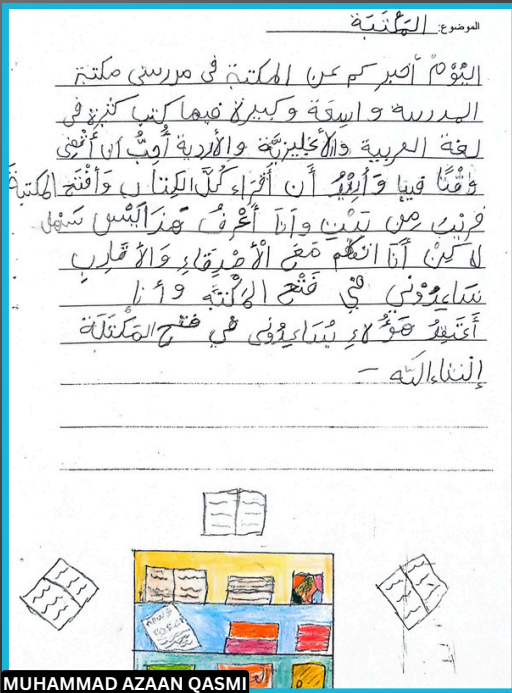 الموضوع: المَكْتَبَة
اليَوْمَ أخبركم عن المكتبة في مدرستي مكتبة
المدرسة واسِعَة وكبيرة فيها كتب كثيرة في
لغة العربية والأنجليزيَّة والأردية أُحِبُّ أن أَقْضِي
وقْتًا فيها وَأُرِيْدُ أَن أَقْرَاء كُلَّ الكِتاب وَأفْتَح المكتبة
قريْب مِن بَيْتِي وأنَا أَعْرِفُ هَذَا لَيْسَ سَهْل
لاكِنْ أَنَا اتكلم مَعَ الْأصْدِقَاءِ وَالأقَارِبِ
يساعِدُوْنِي فِي فَتْحِ المَكْتَبَة وأنا
أَعْتَقِدُ هَؤُلاءِ يُسَاعِدُونِي فِي فتح المَكْتَبَة
إنشاءالله –
MUHAMMAD AZAAN QASMI